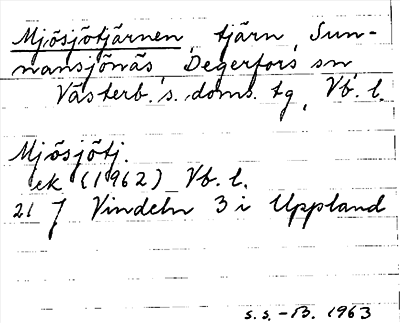 Mjösjötjärnen, tjärn, Sun-
nansjönäs, Degerfors sn,
Västerb. s. doms. tg, Vb. l.
Mjösjötj.
ek (1962) Vb. l.
21 7 Vindeln 3 i Uppland
S.S. - B. 1963